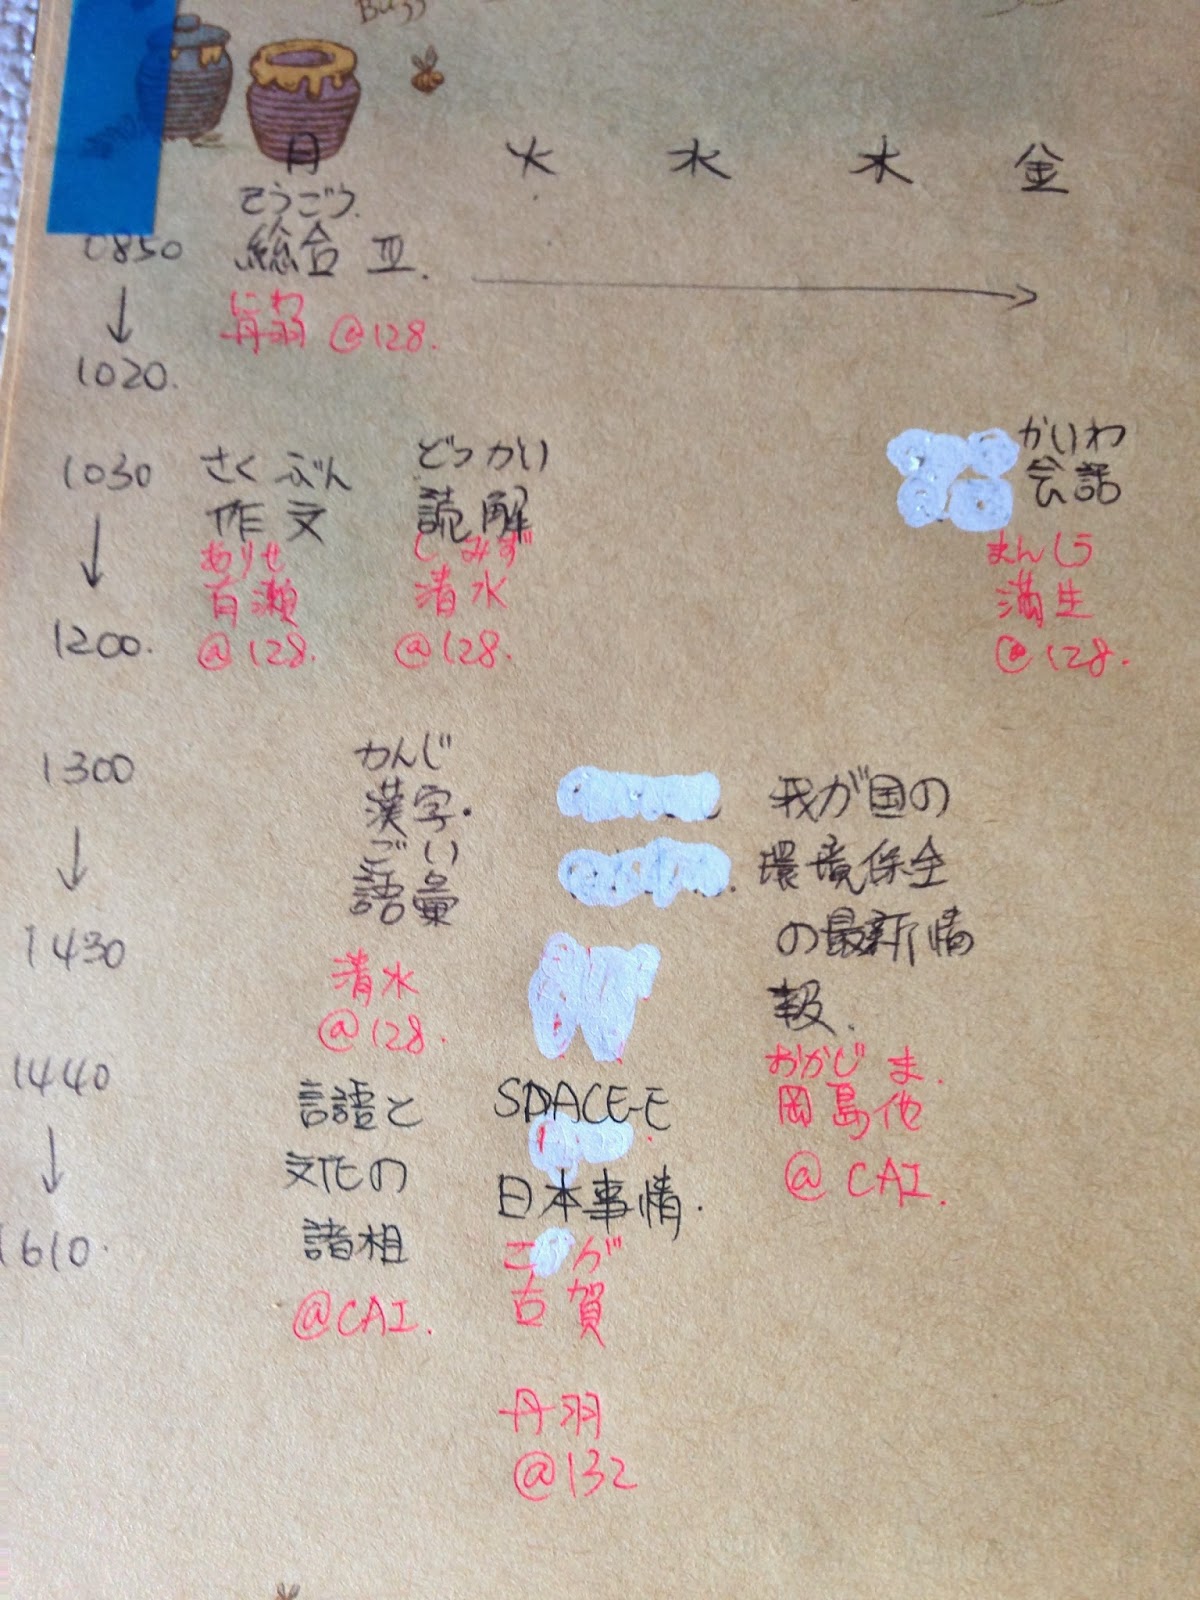 Buzz
月 火 水 木 金
そうごう
0850 総合 Ⅲ.
にわ
丹羽 @128.
1020.
1030 さくぶん どっかい かいわ
作文 読解 会話
ありせ しみず まんしょう
有瀬 清水 満生
1200. @128. @128. @128.
1300 かんじ
漢字・ 我が国の
ごい
語彙 環境保全
1430 の最新情
清水 報.
@128.
1440 言語と SPACE-E おかじま.
岡島他
文化の 日本事情. @CAI.
1610. 諸相 こが
@CAI. 古賀
丹羽
@132